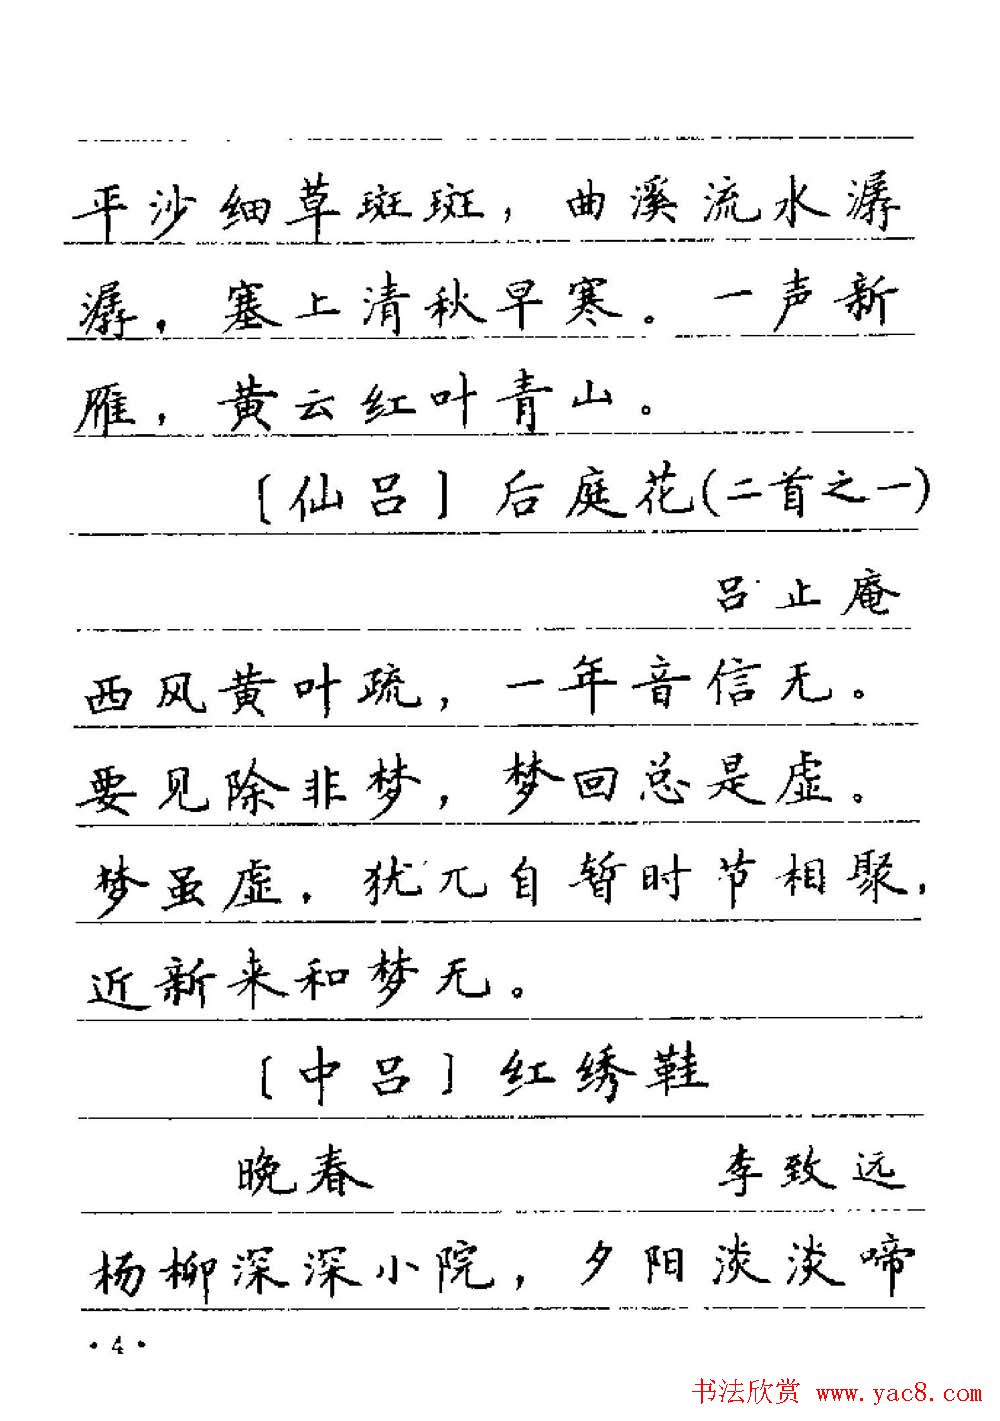 平沙细草斑斑，曲溪流水潺
潺，塞上清秋早寒。一声新
雁，黄云红叶青山。
〔仙吕〕后庭花(二首之一)
吕止庵
西风黄叶疏，一年音信无。
要见除非梦，梦回总是虚。
梦虽虚，犹兀自暂时节相聚，
近新来和梦无。
〔中吕〕红绣鞋
晚春 李致远
杨柳深深小院，夕阳淡淡啼
·4·
书法欣赏 www.yac8.com